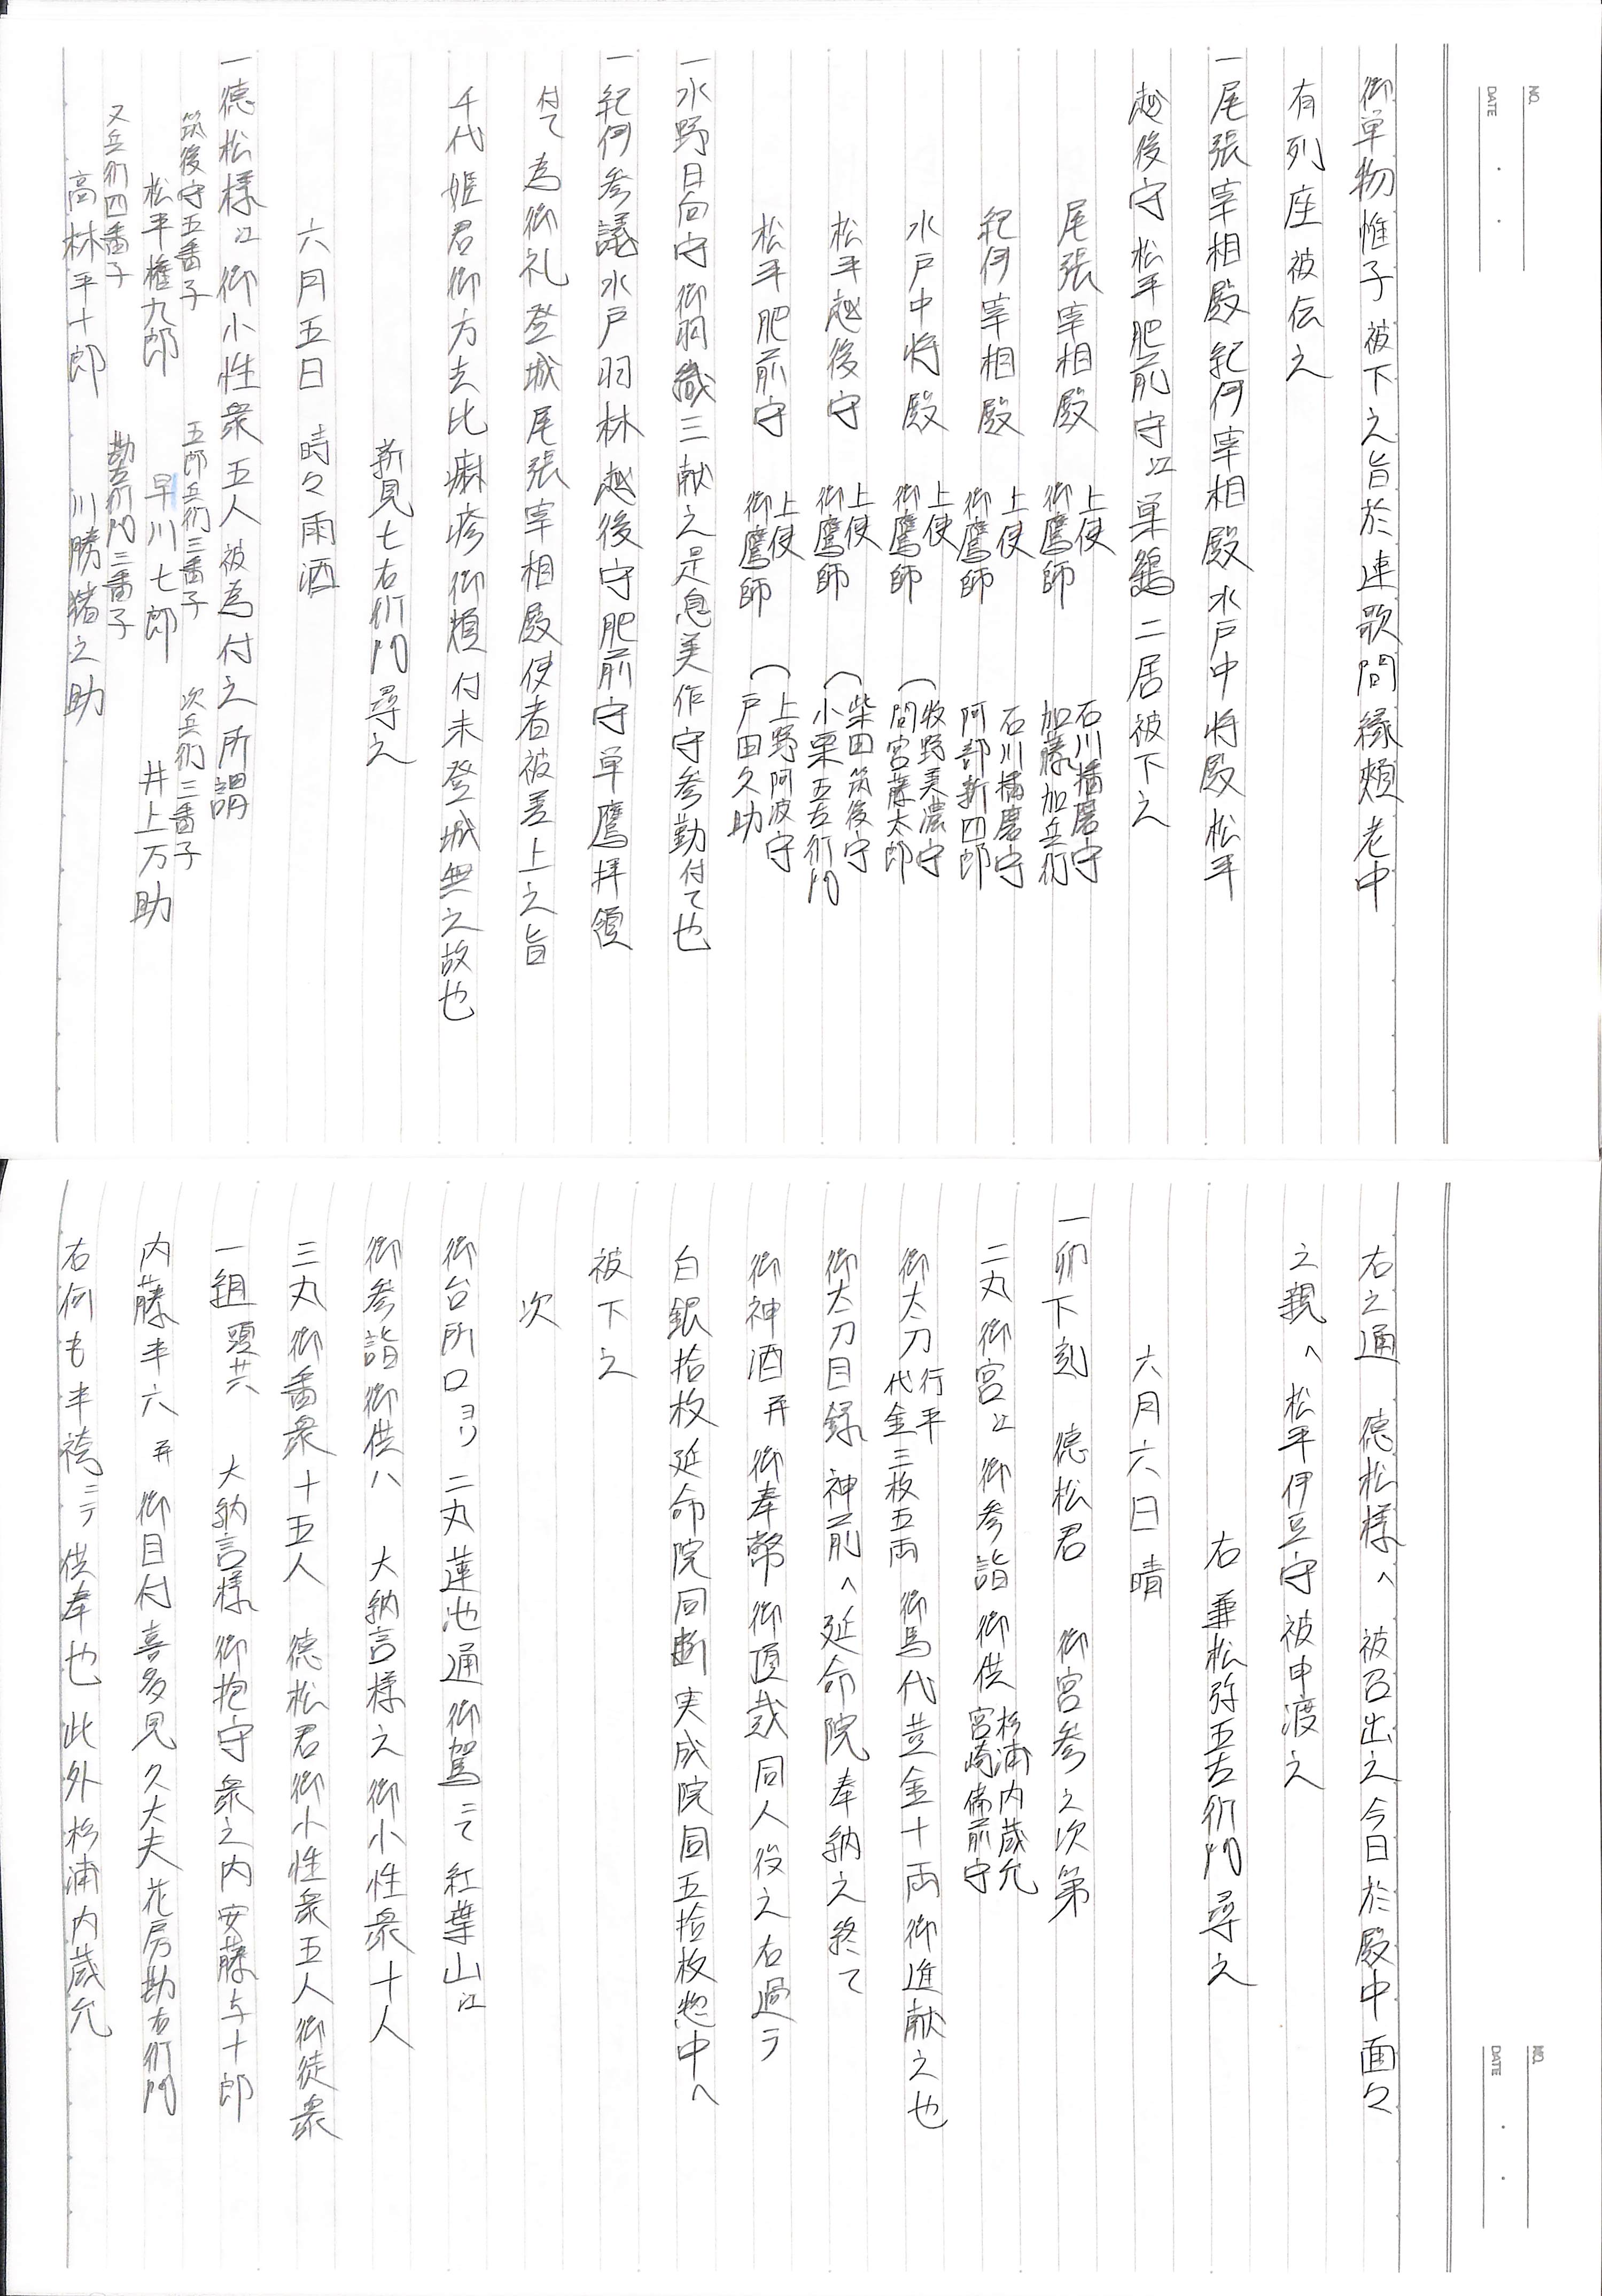 NO.
DATE
御単物惟子 被下之旨於連歌間縁頬老中
有列座被伝之
一尾張宰相殿紀伊宰相殿水戸中将殿松平
越後守松平肥前守江巣鷂二居被下之
尾張宰相殿 上使 石川播磨守
御鷹師 加藤加兵衛
紀伊宰相殿 上使 石川播磨守
御鷹師 阿部新四郎
水戸中将殿 上使 牧野美濃守
御鷹師 間宮藤太郎
松平越後守 上使 柴田筑後守
御鷹師 小栗五左衛門
松平肥前守 上使 上野阿波守
御鷹師 戸田久助
一水野日向守御羽織三献之是息美作守参勤付て也
一紀伊参議水戸羽林越後守肥前守単鷹拝領
付て為御礼登城尾張宰相殿使者被差上之旨
千代姫君御方去比痳疹御煩付未登城無之故也
新見七右衛門尋之
六月五日 時々雨洒
一徳松様江御小性衆五人被為付之所謂
筑後守五番子 五郎兵衛三番子 次兵衛三番子
松平権九郎 早川七郎 井上万助
又兵衛四番子 勘左衛門三番子
高林平十郎 川勝猪之助
NO.
DATE
右之通 徳松様へ 被召出之今日於殿中面々
之親へ松平伊豆守被申渡之
右兼松弥五左衛門尋之
六月六日 晴
一卯下刻 徳松君 御宮参之次第
二丸御宮江御参詣 御供 杉浦内蔵允
宮崎備前守
御太刀 行平
代金三枚五両 御馬代並金十両御進献之也
御太刀目録神前へ延命院奉納之終て
御神酒并御奉幣御頂戴同人役之右過テ
白銀拾枚延命院同断実成院同五拾枚惣中へ
被下之
次
御台所口ヨリ二丸蓮池通御駕ニて紅葉山江
御参詣御供ハ 大納言様之御小性衆十人
三丸御番衆十五人 徳松君御小性衆五人御徒衆
一組頭共 大納言様御抱守衆之内安藤与十郎
内藤半六并御目付喜多見久大夫花房勘右衛門
右何も半袴ニテ供奉也此外杉浦内蔵允